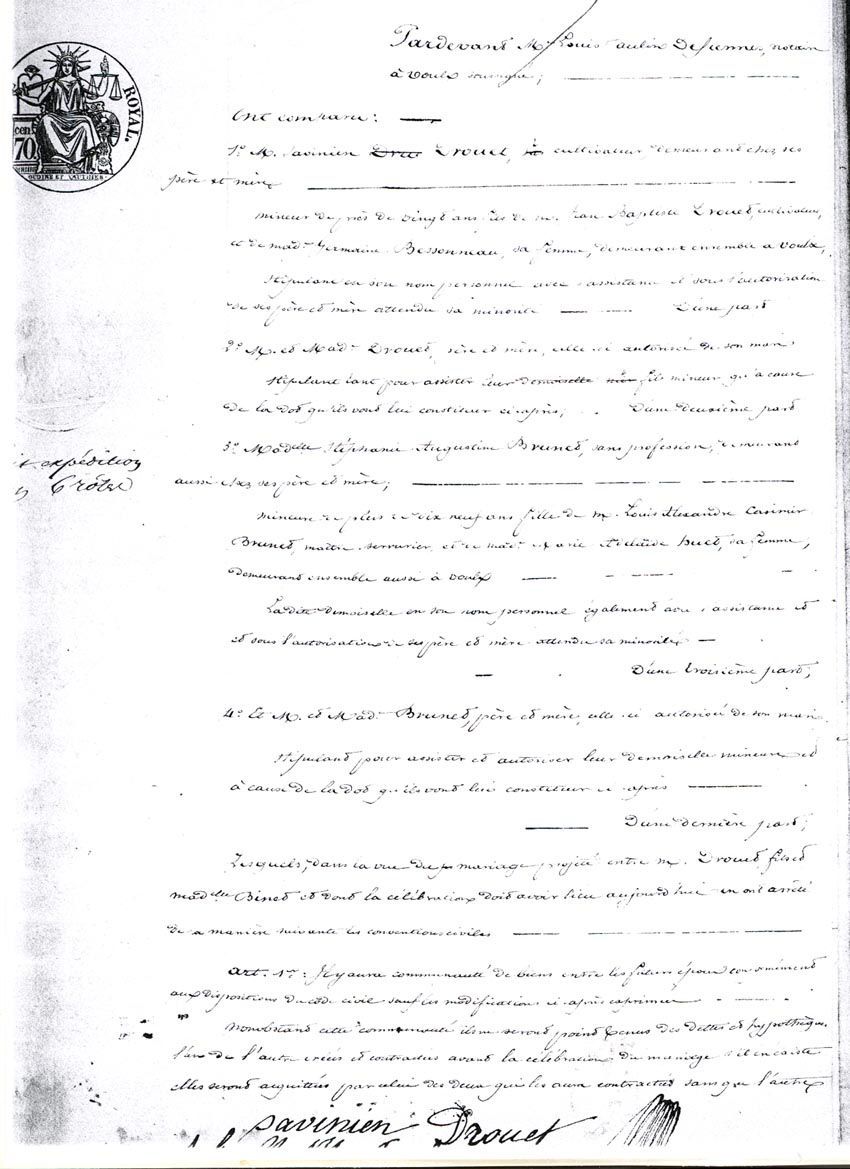 Pardevant Me Louis Paulin Desienne, notaire
à Voulx soussigné;
Ont comparu:
1º M. Savinien Drouet, cultivateur demeurant chez ses
père et mère
mineur de près de vingt ans, fils de M. Jean Baptiste Drouet, cultivateur,
et de made Germaine Bessonneau, sa femme, demeurant ensemble à Voulx,
Stipulant en son nom personnel avec l'assistance et sous l'autorisation
de ses père et mère attendu sa minorité D'une part
2º M. et Made Drouet, père et mère, celle-ci autorisée de son mari
Stipulant tant pour assister leur demoiselle fils mineur qu'à cause
de la dot qu'ils vont lui constituer ci-après, D'une deuxième part
3º Madelle Stéphanie Augustine Brunet, sans profession, demeurant
aussi chez ses père et mère;
mineure de plus de dix neuf ans fille de M. Louis Alexandre Casimir
Brunet, maître serrurier, et de made Marie Adélaïde Huet, sa femme,
demeurant ensemble aussi à Voulx
La dite demoiselle en son nom personnel également avec l'assistance et
et sous l'autorisation de ses père et mère attendu sa minorité
D'une troisième part;
4º Et M. et Made Brunet, père et mère, celle-ci autorisée de son mari
Stipulant pour assister et autoriser leur demoiselle mineure et
à cause de la dot qu'ils vont lui constituer ci-après
D'une dernière part;
Lesquels, dans la vue du mariage projeté entre M. Drouet fils et
madelle Binet et dont la célébration doit avoir lieu aujourd'hui en ont arrêté
de la manière suivante les conventions civiles
art. 1er: Il y aura communauté de biens entre les futurs époux conformément
aux dispositions du code civil sauf les modifications ci-après exprimées
Nonobstant cette communauté ils ne seront point tenus des dettes et hypothèques
l'un de l'autre créés et contractés avant la célébration du mariage s'il en existe
elles seront acquittées par celui des deux qui les aura contractées sans que l'autre
savinien Drouet
expédition
ROYAL.
cen
70